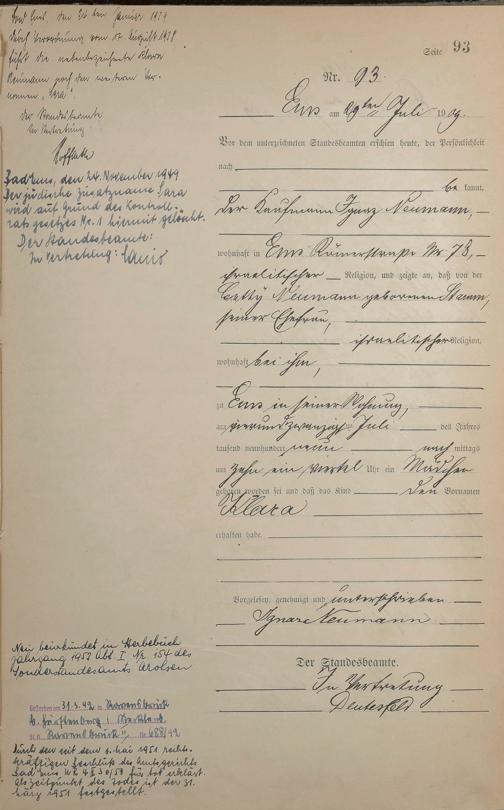 Bad Ems, den 26 ten Januar 1939
Durch Verordnung vom 17 August 1938
führt die nebenbezeichnete Klara
Neumann noch den weiteren Vor-
namen „Sara“
Der Standesbeamte
In Vertretung
Bad Ems, den 24. November 1949
Der jüdische Zusatzname Sara
wird auf Grund des Kontroll-
ratsgesetzes Nr. 1 hiermit gelöscht.
Der Standesbeamte:
In Vertretung:
Seite 93
Nr. 93.
Ems am 29ten Juli 1909.
Vor dem unterzeichneten Standesbeamten erschien heute, der Persönlichkeit
nach
be kannt,
der Kaufmann Ignaz Neumann,
wohnhaft in Ems Römerstraße Nr 78,
israelitischer Religion, und zeigte an, daß von der
Betty Neumann geborenen Stamm,
seiner Ehefrau,
israelitischer Religion,
wohnhaft bei ihm,
zu Ems in seiner Wohnung,
am vierundzwanzigsten Juli des Jahres
tausend neunhundert neun nach mittags
um zehn ein viertel Uhr ein Mädchen
geboren worden sei und daß das Kind den Vornamen
Klara
erhalten habe.
Vorgelesen, genehmigt und unterschrieben
Ignaz Neumann
Der Standesbeamte.
In Vertretung
Neu beurkundet im Sterbebuch
Jahrgang 1952 Abt I Nr. 154 des
Sonderstandesamts Arolsen
Gestorben am 31.3.42 in Ravensbrück
b. Fürstenberg / Mecklenb.
St.A. „Ravensbrück“, Nr. 688/42
durch den seit dem 1. Mai 1951 rechts-
kräftigen Beschluß des Amtsgerichts
Bad Ems für tot erklärt.
Als Zeitpunkt des Todes ist der 31.
März 1951 festgestellt.